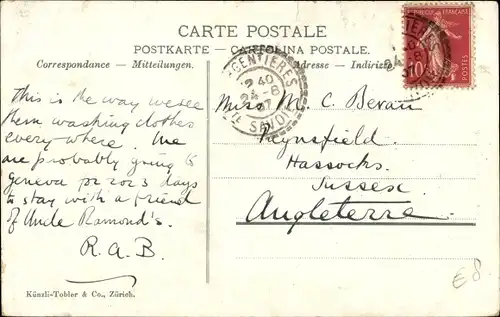 CARTE POSTALE
POSTKARTE – CARTOLINA POSTALE.
Correspondance – Mitteilungen.
Adresse – Indirizzo
ARGENTIERES
2 40
24 - 8
07
HTE SAVOIE
REPUBLIQUE FRANÇAISE
10
POSTES
This is the way we see
them washing clothes
everywhere. We
are probably going to
Geneva for 2 or 3 days
to stay with a friend
of Uncle Ramond's.
R. A. B.
Miss M. C. Bevan
Heynsfield
Hassocks.
Sussex
Angleterre
Künzli-Tobler & Co., Zürich.
E8